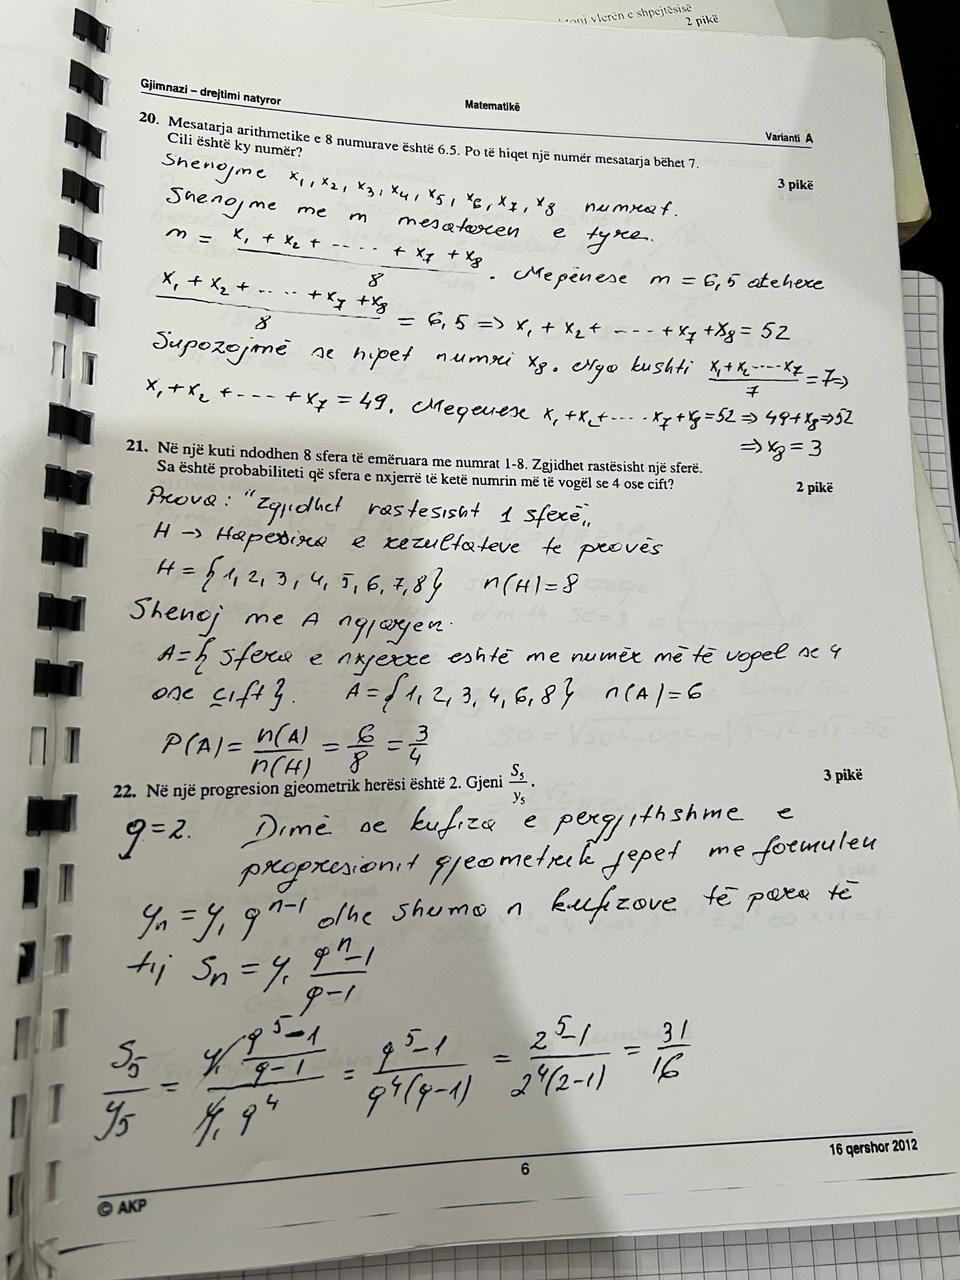 vlerën e shpejtësisë
2 pikë
Gjimnazi – drejtimi natyror
Matematikë
Varianti A
20. Mesatarja arithmetike e 8 numurave është 6.5. Po të hiqet një numër mesatarja bëhet 7.
Cili është ky numër?
3 pikë
Shenojme x₁, x₂, x₃, x₄, x₅, x₆, x₇, x₈ numrat.
Shenojme me m mesataren e tyre.
m = (x₁ + x₂ + ..... + x₇ + x₈)/8. Meqenese m = 6,5 atehere
(x₁ + x₂ + ..... + x₇ + x₈)/8 = 6,5 => x₁ + x₂ + ..... + x₇ + x₈ = 52
Supozojmë se hiqet numri x₈. Nga kushti (x₁+x₂.....x₇)/7 = 7 =>
x₁ + x₂ + .... + x₇ = 49. Meqenese x₁+x₂+.....x₇+x₈=52 => 49+x₈=>52
=> x₈ = 3
21. Në një kuti ndodhen 8 sfera të emëruara me numrat 1-8. Zgjidhet rastësisht një sferë.
Sa është probabiliteti që sfera e nxjerrë të ketë numrin më të vogël se 4 ose cift?
2 pikë
Prova: "Zgjidhet rastesisht 1 sferë"
H → Hapesira e rezultateve te provës
H = {1, 2, 3, 4, 5, 6, 7, 8} n(H) = 8
Shenoj me A ngjarjen.
A={ sfera e nxjerre eshtë me numër më të vogel se 4
ose çift}. A = {1, 2, 3, 4, 6, 8} n(A) = 6
P(A) = n(A)/n(H) = 6/8 = 3/4
22. Në një progresion gjeometrik herësi është 2. Gjeni S₅/y₅.
3 pikë
q = 2. Dimë se kufiza e pergjithshme e
progresionit gjeometrik jepet me formulen
yₙ = y₁ qⁿ⁻¹ dhe shuma n kufizove të para të
tij Sₙ = y₁ (qⁿ-1)/(q-1)
S₅/y₅ = (y₁ (q⁵-1)/(q-1))/(y₁ q⁴) = (q⁵-1)/(q⁴(q-1)) = (2⁵-1)/(2⁴(2-1)) = 31/16
16 qershor 2012
6
© AKP